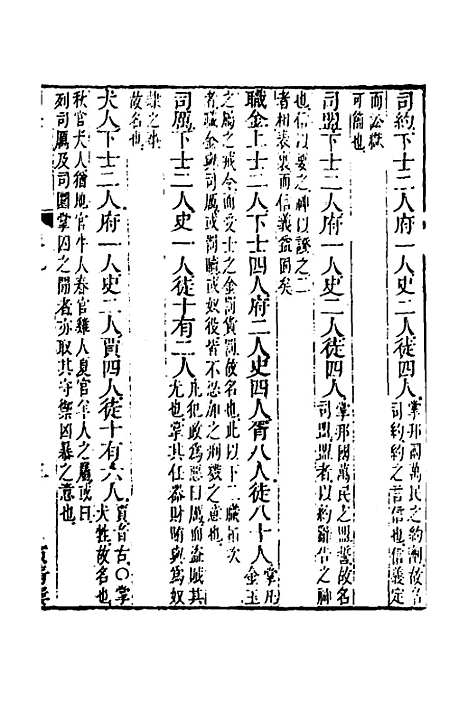 司約下士二人府一人史二人徒四人掌邦國萬民之約劑故名
司約約之言信也信義定
而訟獄
可簡也
司盟下士二人府一人史二人徒四人掌邦國萬民之盟誓故名
司盟盟者以約辭告之神
也信以要之神以證之二
者相表裏而信義益固矣
職金上士二人下士四人府二人史四人胥八人徒八十人掌凡
金玉
之屬之戒令而受士之金罰貨罰故名也此以下二職次
者職金與司厲或罰贖或奴役皆不忍加之刑戮之
司厲下士二人史一人徒十有二人凡犯政爲惡曰厲而盜賊其
尤也掌其任器財賄與爲奴
隷之事
故名也
犬人下士二人府一人史二人賈四人徒十有六人賈音古○掌
犬牲故名也
秋官犬人猶地官牛人春官雞人夏官羊人之屬或曰
列司厲及司圜掌囚之間者亦取其守禦凶暴之意也